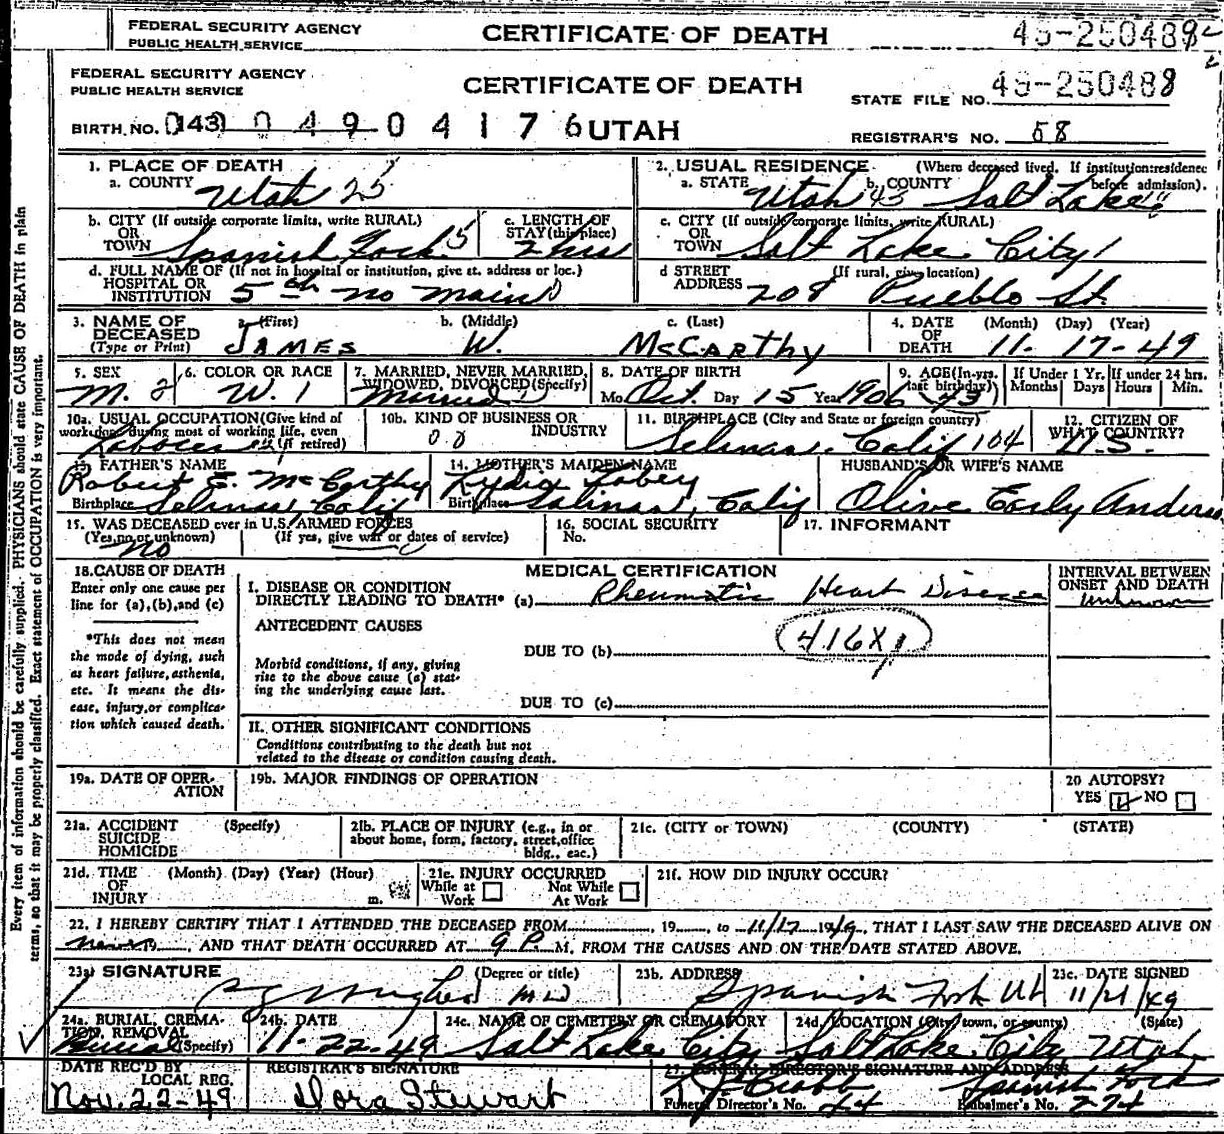 FEDERAL SECURITY AGENCY
PUBLIC HEALTH SERVICE
CERTIFICATE OF DEATH
49-250488
FEDERAL SECURITY AGENCY
PUBLIC HEALTH SERVICE
CERTIFICATE OF DEATH
STATE FILE NO. 49-250488
BIRTH NO. (143) 0 4 9 0 4 1 7 6 UTAH
REGISTRAR'S NO. 58
1. PLACE OF DEATH
a. COUNTY Utah 25
2. USUAL RESIDENCE (Where deceased lived. If institution: residence before admission).
a. STATE Utah 43 b. COUNTY Salt Lake
b. CITY (If outside corporate limits, write RURAL) OR TOWN Spanish Fork 5
c. LENGTH OF STAY (this place) 2 hrs
c. CITY (If outside corporate limits, write RURAL) OR TOWN Salt Lake City 1
d. FULL NAME OF (If not in hospital or institution, give st. address or loc.) HOSPITAL OR INSTITUTION 5th no main
d STREET ADDRESS (If rural, give location) 208 Pueblo St.
3. NAME OF DECEASED (Type or Print) a. (First) JAMES b. (Middle) W. c. (Last) McCARTHY
4. DATE OF DEATH (Month) (Day) (Year) 11-17-49
5. SEX M. 2
6. COLOR OR RACE W. 1
7. MARRIED, NEVER MARRIED, WIDOWED, DIVORCED (Specify) Married
8. DATE OF BIRTH Mo Oct. Day 15 Year 1906
9. AGE (In yrs. last birthday) 43
If Under 1 Yr. Months Days
If under 24 hrs. Hours Min.
10a. USUAL OCCUPATION (Give kind of work done during most of working life, even if retired) Laborer
10b. KIND OF BUSINESS OR INDUSTRY
11. BIRTHPLACE (City and State or foreign country) Selinas, Calif 104
12. CITIZEN OF WHAT COUNTRY? U.S.
13. FATHER'S NAME Robert E. McCarthy
Birthplace Selinas, Calif
14. MOTHER'S MAIDEN NAME Lydia
Birthplace Salinas, Calif
HUSBAND'S OR WIFE'S NAME
Olive Early
15. WAS DECEASED ever in U.S. ARMED FORCES
(Yes, no or unknown) (If yes, give war or dates of service)
no
16. SOCIAL SECURITY No.
17. INFORMANT
18. CAUSE OF DEATH
Enter only one cause per line for (a), (b), and (c)
*This does not mean the mode of dying, such as heart failure, asthenia, etc. It means the disease, injury, or complication which caused death.
MEDICAL CERTIFICATION
I. DISEASE OR CONDITION DIRECTLY LEADING TO DEATH* (a) Rheumatic Heart Disease
INTERVAL BETWEEN ONSET AND DEATH
unknown
ANTECEDENT CAUSES
416X1
DUE TO (b)
Morbid conditions, if any, giving rise to the above cause (a) stating the underlying cause last.
DUE TO (c)
II. OTHER SIGNIFICANT CONDITIONS
Conditions contributing to the death but not related to the disease or condition causing death.
19a. DATE OF OPERATION
19b. MAJOR FINDINGS OF OPERATION
20 AUTOPSY?
YES NO
21a. ACCIDENT SUICIDE HOMICIDE (Specify)
21b. PLACE OF INJURY (e.g., in or about home, form, factory, street, office bldg., eac.)
21c. (CITY or TOWN) (COUNTY) (STATE)
21d. TIME OF INJURY (Month) (Day) (Year) (Hour) m.
21e. INJURY OCCURRED
While at Work Not While At Work
21f. HOW DID INJURY OCCUR?
22. I HEREBY CERTIFY THAT I ATTENDED THE DECEASED FROM, 19, to 11/17 1949, THAT I LAST SAW THE DECEASED ALIVE ON
never, AND THAT DEATH OCCURRED AT 9 P. M. FROM THE CAUSES AND ON THE DATE STATED ABOVE.
23a. SIGNATURE (Degree or title)
Hughes MD
23b. ADDRESS
Spanish Fork Ut
23c. DATE SIGNED
11/21/49
24a. BURIAL, CREMATION, REMOVAL (Specify) Burial
24b. DATE 11-22-49
24c. NAME OF CEMETERY OR CREMATORY Salt Lake City
24d. LOCATION (City, town, or county) (State) Salt Lake City, Utah
DATE REC'D BY LOCAL REG. Nov. 22-49
REGISTRAR'S SIGNATURE Dora Stewart
FUNERAL DIRECTOR'S SIGNATURE AND ADDRESS
Spanish Fork
Funeral Director's No. 44 Embalmer's No. 274
Every item of information should be carefully supplied. PHYSICIANS should state CAUSE OF DEATH in plain
terms, so that it may be properly classified. Exact statement of OCCUPATION is very important.